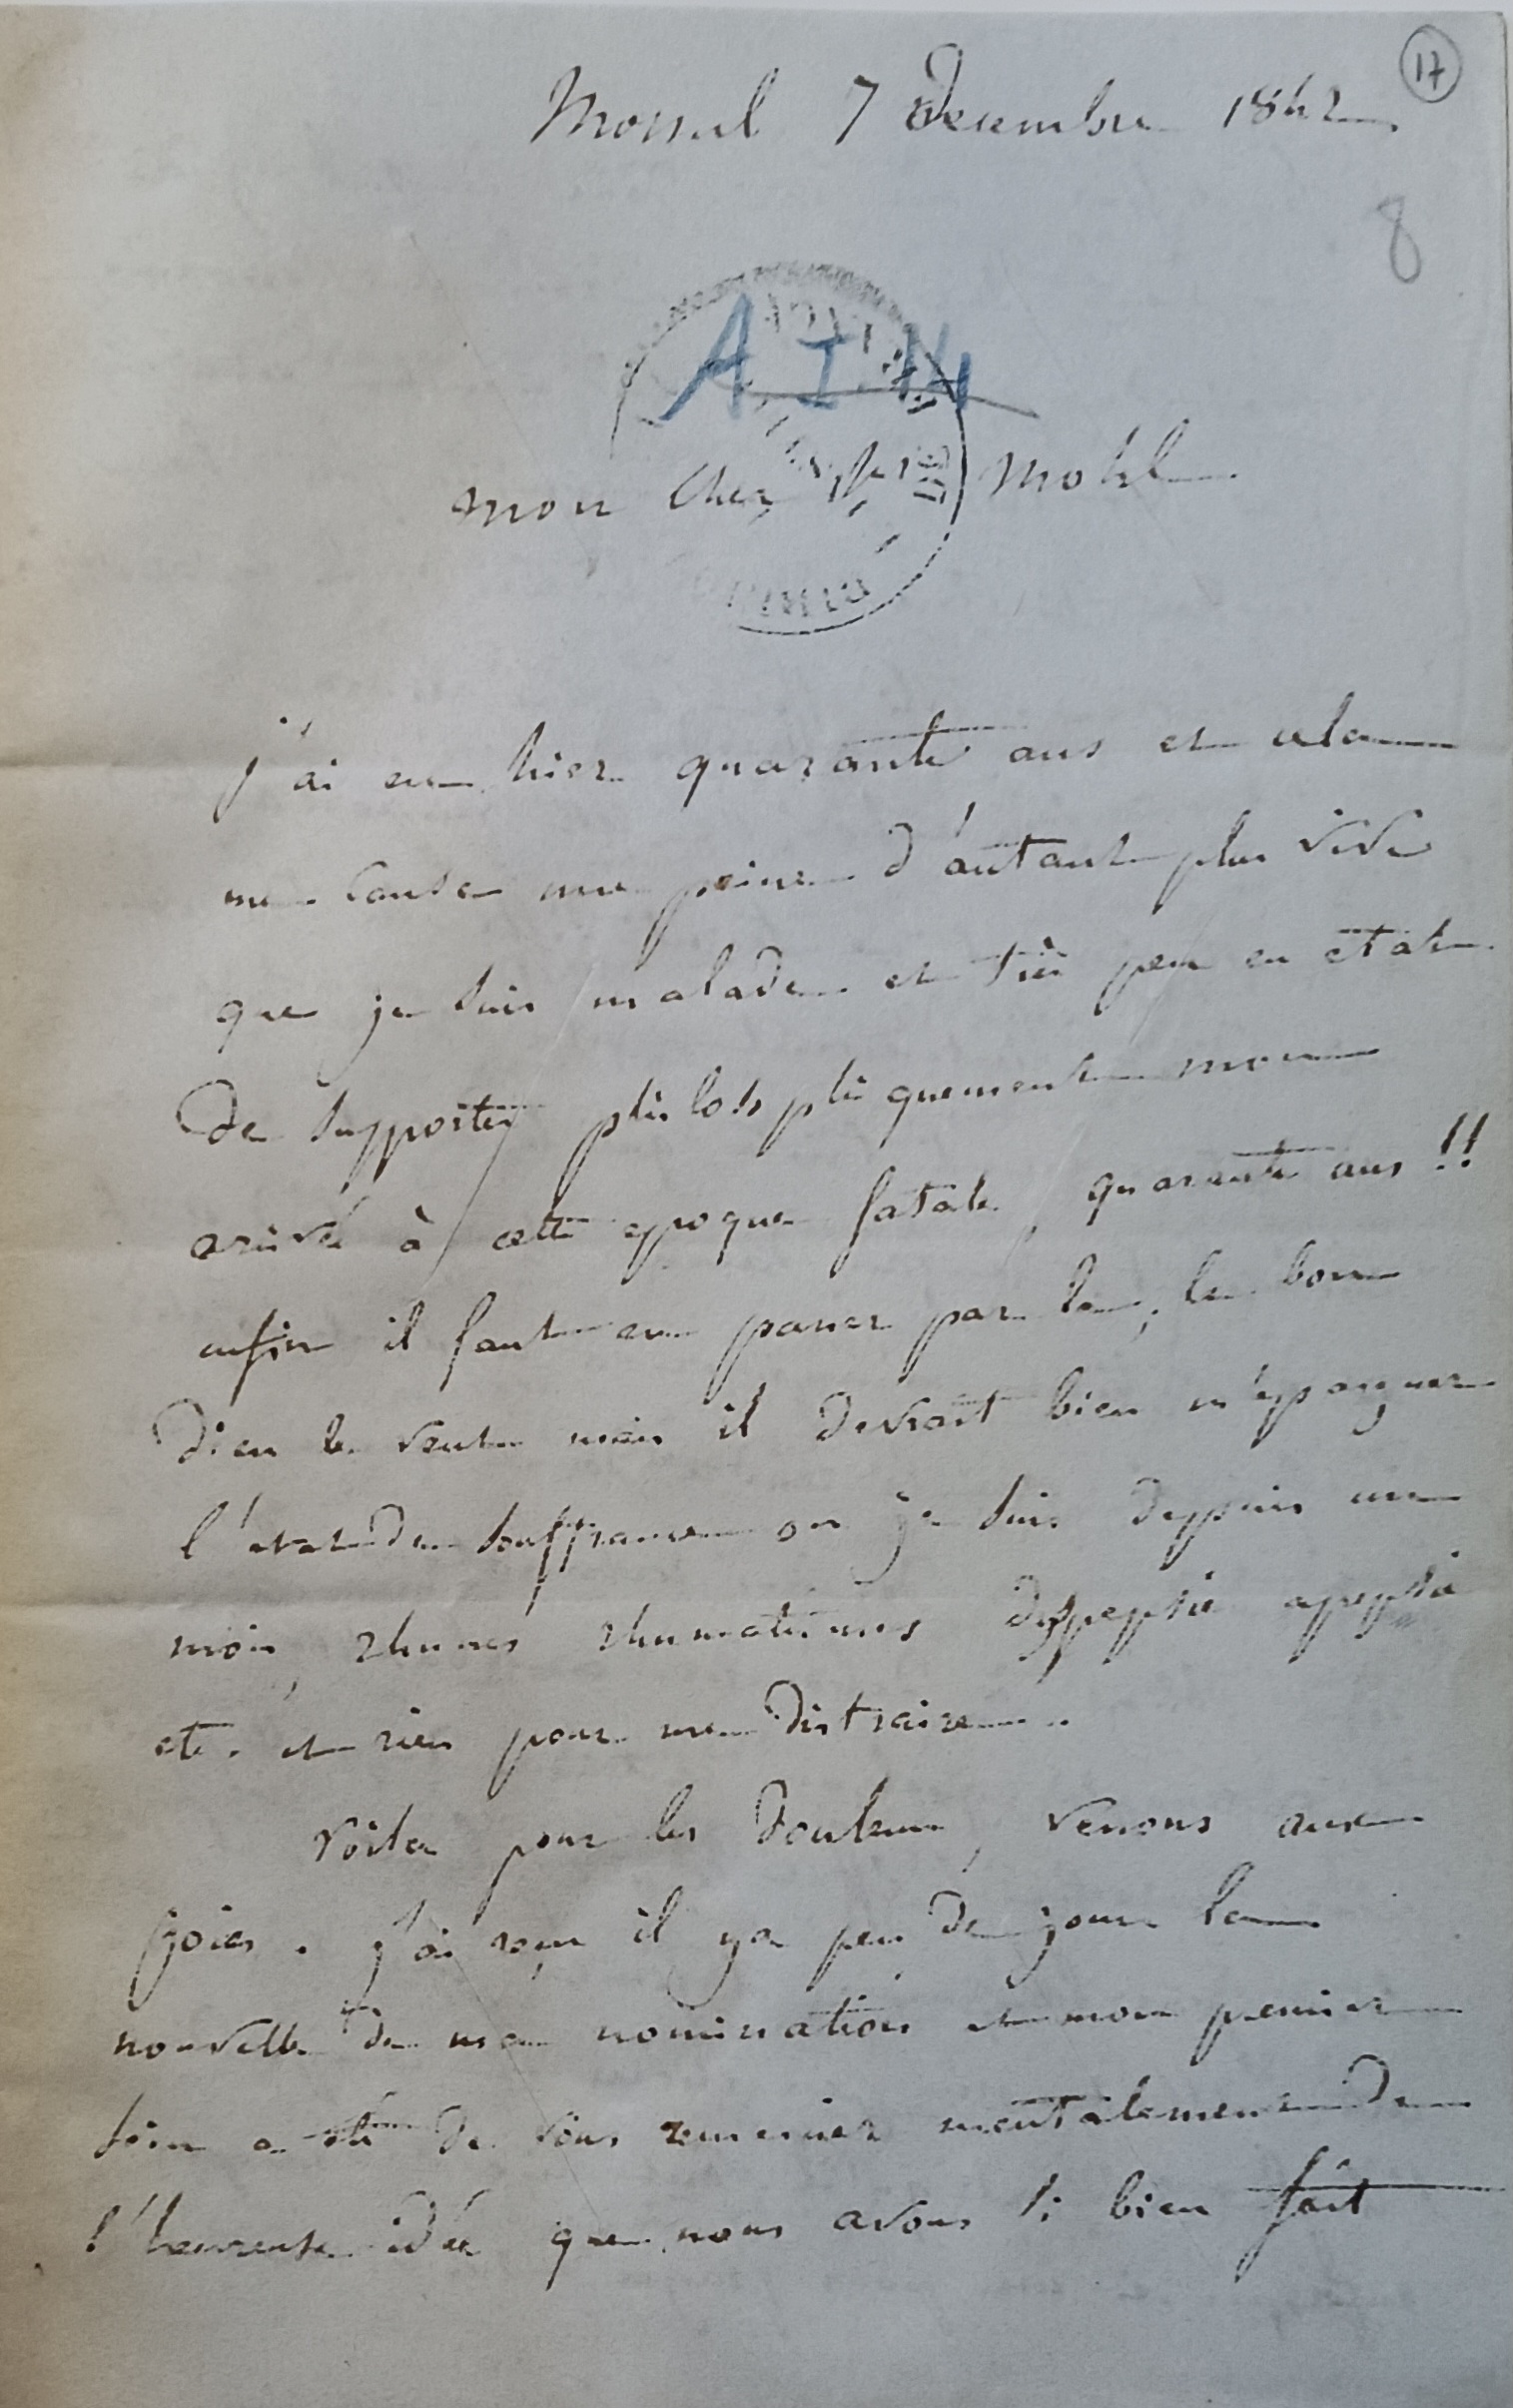 17
Mossul 7 Decembre 1842
8
A I N
mon cher Mr Mohl
j'ai eu hier quarante ans et cela
me cause une peine d'autant plus vive
que je suis malade et très peu en etat
De supporter philosophiquement mon
arivée à cette epoque fatale, quarante ans!!
enfin il faut en passer par la, le bon
Dieu le veut mais il devrait bien m'epargner
l'etat de souffrance ou je suis depuis un
mois, rhumes rhumatismes dyspepsie apepsie
etc. et rien pour me distraire.
Voila pour les douleurs, venons aux
joies. j'ai reçu il y a peu de jours la
nouvelle de ma nomination et mon premier
soin a été de vous remercier mentalement de
l'heureuse idée que nous avons si bien fait